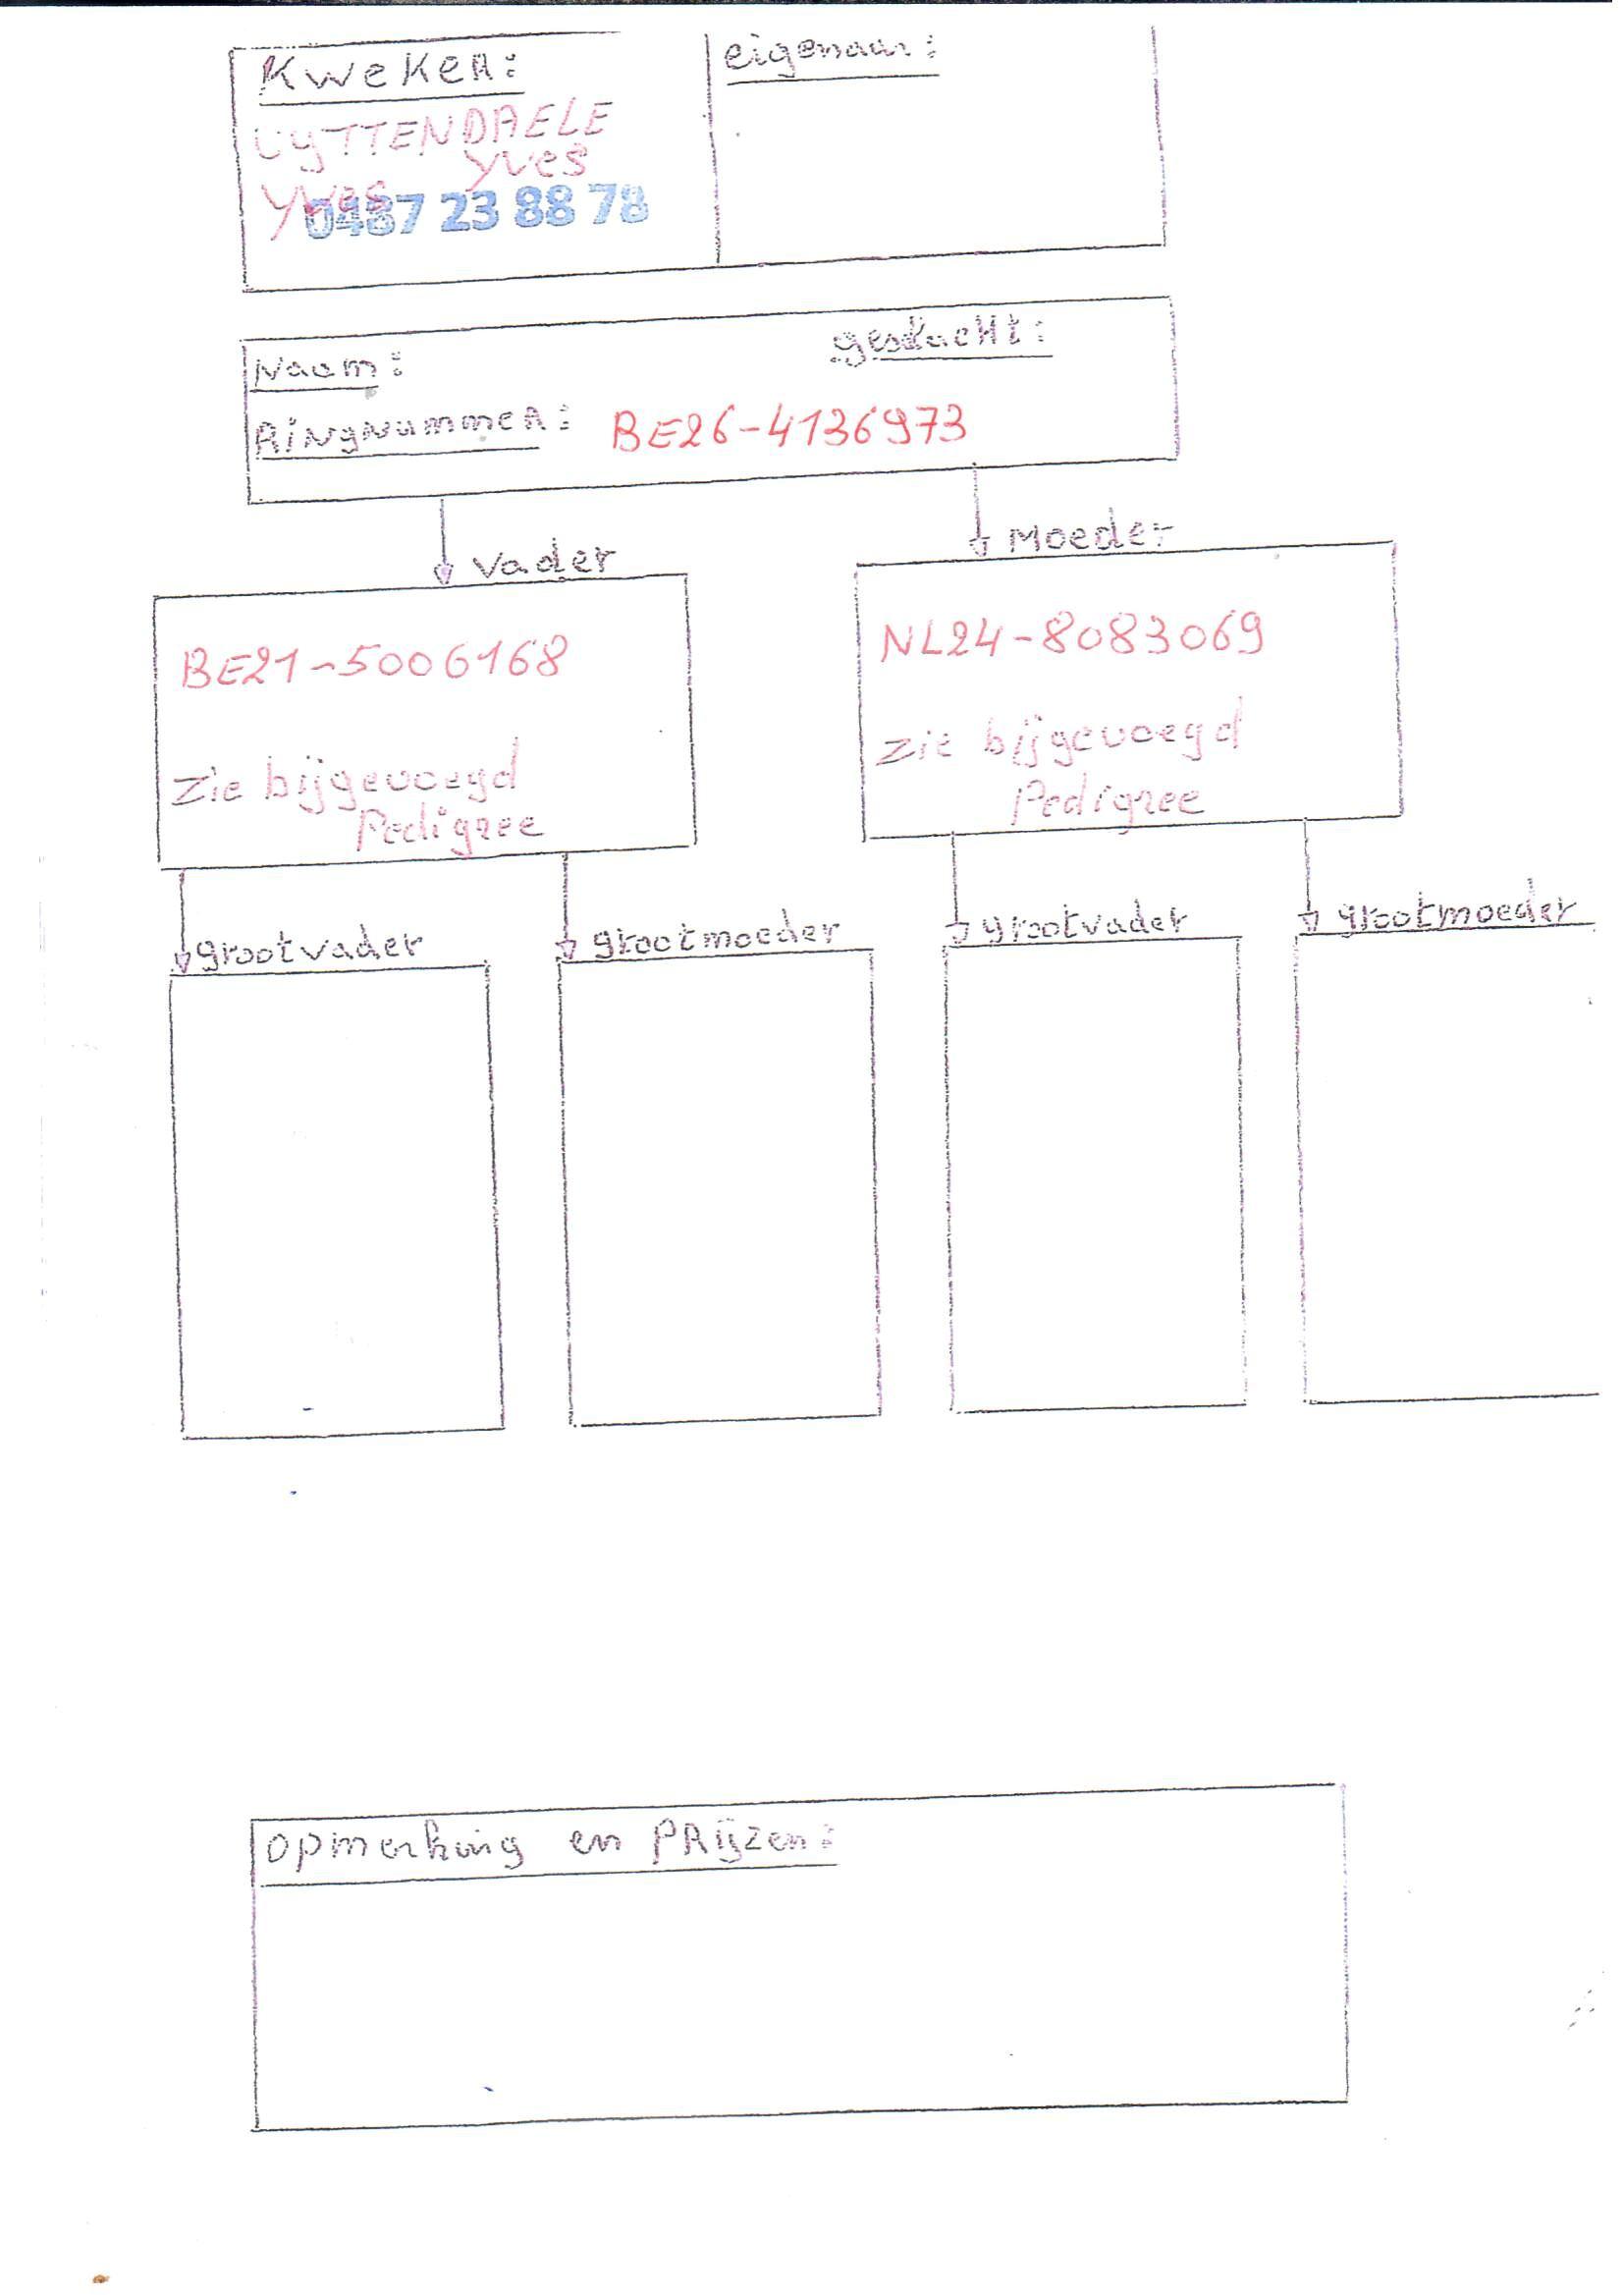 Kweker:
eigenaar:
UYTTENDAELE
Yves
Yves
0487 23 88 78
Naam:
geslacht:
Ringnummer: BE26-4136973
Vader
Moeder
BE21-5006168
Zie bijgevoegd
Pedigree
NL24-8083069
Zie bijgevoegd
Pedigree
grootvader
grootmoeder
grootvader
grootmoeder
opmerking en PRijzen: